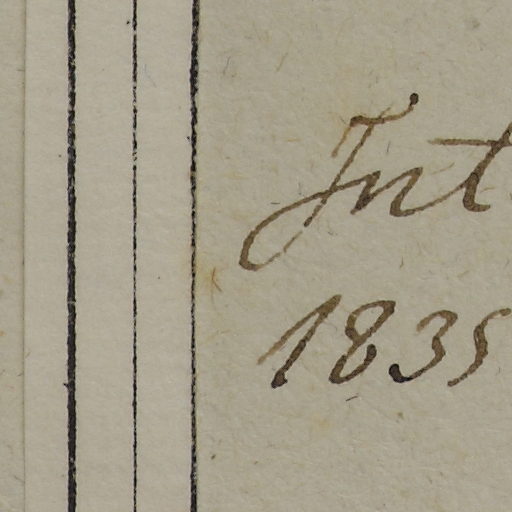 Int
1835